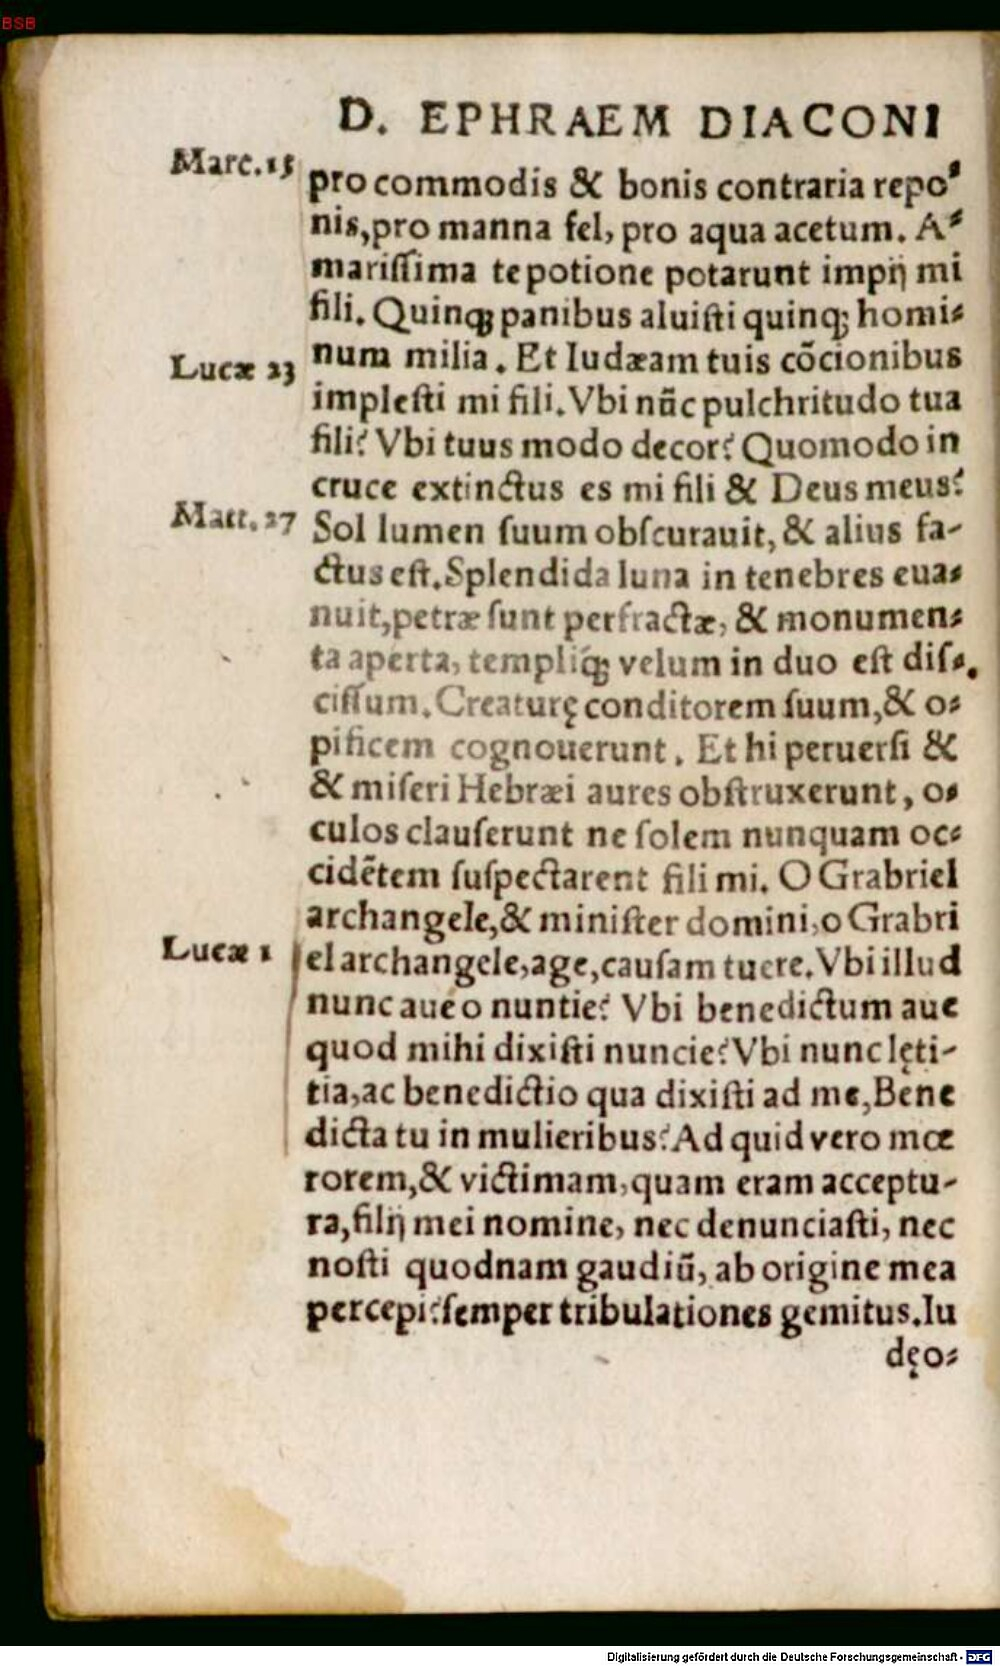 BSB
D. EPHRAEM DIACONI
Marc. 15
pro commodis & bonis contraria repo⸗
nis, pro manna fel, pro aqua acetum. A⸗
mariſſima te potione potarunt impij mi
fili. Quinqꝫ panibus aluiſti quinqꝫ homi⸗
num milia. Et Iudæam tuis cōcionibus
Lucæ 23
impleſti mi fili. Vbi nūc pulchritudo tua
fili? Vbi tuus modo decor? Quomodo in
cruce extinctus es mi fili & Deus meus?
Matt. 27
Sol lumen ſuum obſcurauit, & alius fa-
ctus eſt. Splendida luna in tenebres eua⸗
nuit, petræ ſunt perfractæ, & monumen⸗
ta aperta, templiq́ꝫ velum in duo eſt diſ⸗.
ciſſum. Creaturę conditorem ſuum, & o⸗
pificem cognouerunt. Et hi peruerſi &
& miſeri Hebræi aures obſtruxerunt, o⸗
culos clauſerunt ne ſolem nunquam oc⸗
cidētem ſuſpectarent fili mi. O Grabriel
archangele, & miniſter domini, o Grabri
Lucæ 1
el archangele, age, cauſam tuere. Vbi illud
nunc aue o nuntie? Vbi benedictum aue
quod mihi dixiſti nuncie? Vbi nunc lęti-
tia, ac benedictio qua dixiſti ad me, Bene
dicta tu in mulieribus? Ad quid vero mœ
rorem, & victimam, quam eram acceptu-
ra, filij mei nomine, nec denunciaſti, nec
noſti quodnam gaudiū, ab origine mea
percepi? ſemper tribulationes gemitus. Iu
dęo⸗
Digitalisierung gefördert durch die Deutsche Forschungsgemeinschaft - DFG